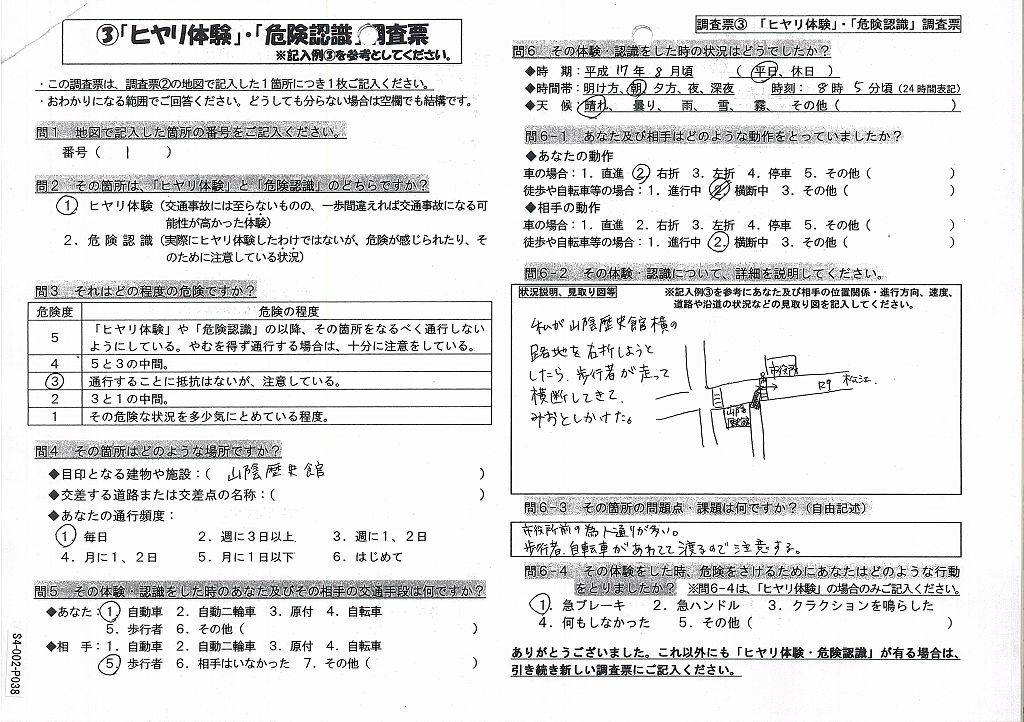 ③「ヒヤリ体験」・「危険認識」調査票
※記入例③を参考としてください。
・この調査票は、調査票②の地図で記入した1箇所につき1枚ご記入ください。
・おわかりになる範囲でご回答ください。どうしても分らない場合は空欄でも結構です。
問1 地図で記入した箇所の番号をご記入ください。
番号( 1 )
問2 その箇所は、「ヒヤリ体験」と「危険認識」のどちらですか?
1. ヒヤリ体験(交通事故には至らないものの、一歩間違えれば交通事故になる可
能性が高かった体験)
2. 危険認識(実際にヒヤリ体験したわけではないが、危険が感じられたり、そ
のために注意している状況)
問3 それはどの程度の危険ですか?
危険度 危険の程度
5 「ヒヤリ体験」や「危険認識」の以降、その箇所をなるべく通行しない
ようにしている。やむを得ず通行する場合は、十分に注意をしている。
4 5と3の中間。
3 通行することに抵抗はないが、注意している。
2 3と1の中間。
1 その危険な状況を多少気にとめている程度。
問4 その箇所はどのような場所ですか?
◆目印となる建物や施設:( 山陰歴史館 )
◆交差する道路または交差点の名称:( )
◆あなたの通行頻度:
1. 毎日 2. 週に3日以上 3. 週に1、2日
4. 月に1、2日 5. 月に1日以下 6. はじめて
問5 その体験・認識をした時のあなた及びその相手の交通手段は何ですか?
◆あなた:1. 自動車 2. 自動二輪車 3. 原付 4. 自転車
5. 歩行者 6. その他( )
◆相 手:1. 自動車 2. 自動二輪車 3. 原付 4. 自転車
5. 歩行者 6. 相手はいなかった 7. その他( )
S4-002-P038
調査票③ 「ヒヤリ体験」・「危険認識」調査票
問6 その体験・認識をした時の状況はどうでしたか?
◆時 期:平成 17 年 8 月頃 ( 平日、休日 )
◆時間帯:明け方、朝、夕方、夜、深夜 時刻: 8 時 5 分頃(24時間表記)
◆天 候:晴れ、曇り、雨、雪、霧、その他( )
問6-1 あなた及び相手はどのような動作をとっていましたか?
◆あなたの動作
車の場合:1. 直進 2. 右折 3. 左折 4. 停車 5. その他( )
徒歩や自転車等の場合:1. 進行中 2. 横断中 3. その他( )
◆相手の動作
車の場合:1. 直進 2. 右折 3. 左折 4. 停車 5. その他( )
徒歩や自転車等の場合:1. 進行中 2. 横断中 3. その他( )
問6-2 その体験・認識について、詳細を説明してください。
状況説明、見取り図等 ※記入例③を参考にあなた及び相手の位置関係・進行方向、速度、
道路や沿道の状況などの見取り図を記入してください。
私が山陰歴史館横の
路地を右折しようと
したら、歩行者が走って
横断してきて、
みおとしかけた。
市役所
R9 松江
山陰
歴史館
問6-3 その箇所の問題点・課題は何ですか?(自由記述)
市役所前の為人通りが多い。
歩行者、自転車があわてて渡るので注意する。
問6-4 その体験をした時、危険をさけるためにあなたはどのような行動
をとりましたか? ※問6-4は、「ヒヤリ体験」の場合のみご記入ください。
1. 急ブレーキ 2. 急ハンドル 3. クラクションを鳴らした
4. 何もしなかった 5. その他( )
ありがとうございました。これ以外にも「ヒヤリ体験・危険認識」が有る場合は、
引き続き新しい調査票にご記入ください。